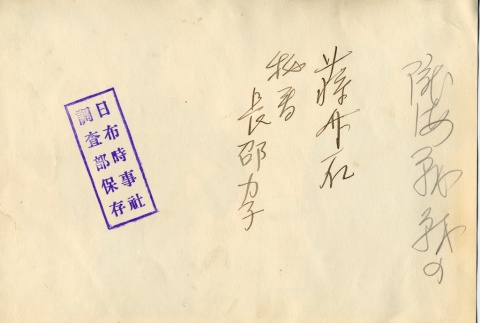 隴海戦線の
蒋介石
秘書
長邵力子
日布時事社
調査部保存